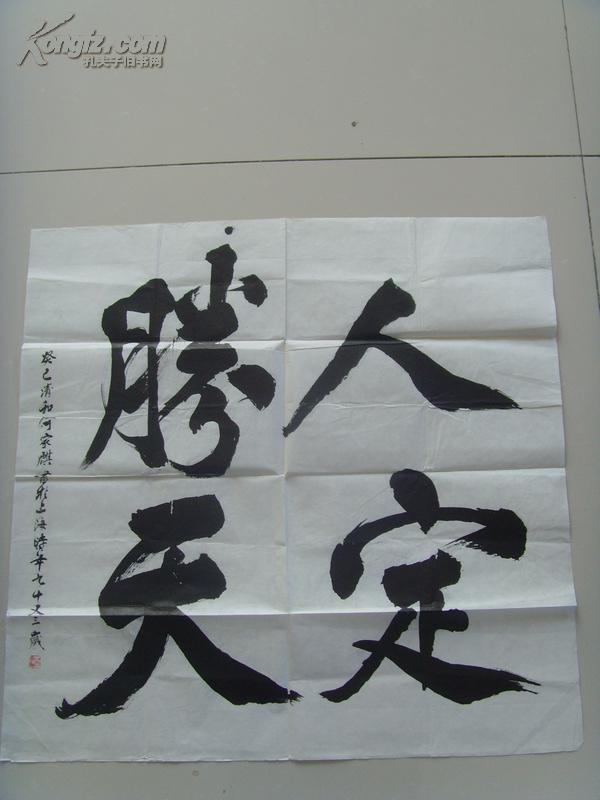 Kongfz.com
孔夫子旧书网
人定
勝天
癸巳清和何家麒書於上海時年七十又三歲